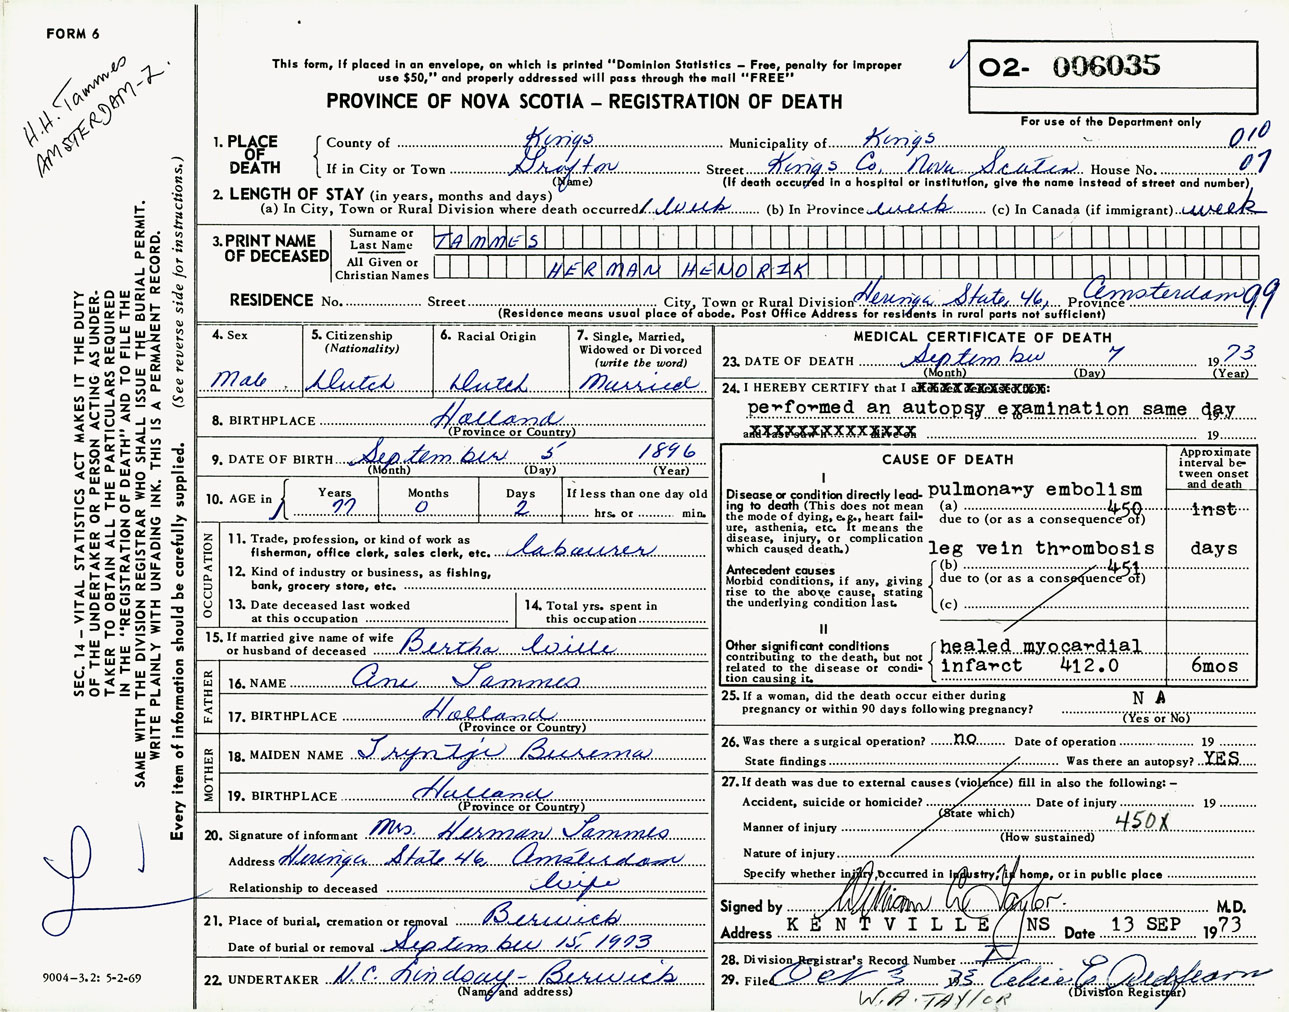 FORM 6
H.H. Tammes
AMSTERDAM-Z.
This form, if placed in an envelope, on which is printed "Dominion Statistics – Free, penalty for improper
use $50," and properly addressed will pass through the mail "FREE"
PROVINCE OF NOVA SCOTIA – REGISTRATION OF DEATH
02- 006035
For use of the Department only
1. PLACE OF DEATH
County of Kings Municipality of Kings 010
If in City or Town Grafton Street Kings Co, Nova Scotia House No. 07
(Name) (If death occurred in a hospital or institution, give the name instead of street and number)
2. LENGTH OF STAY (in years, months and days)
(a) In City, Town or Rural Division where death occurred 1 week (b) In Province week (c) In Canada (if immigrant) week
3. PRINT NAME OF DECEASED
Surname or Last Name TAMMES
All Given or Christian Names HERMAN HENDRIK
RESIDENCE No. Street City, Town or Rural Division Heringa State 46, Province Amsterdam 99
(Residence means usual place of abode. Post Office Address for residents in rural parts not sufficient)
4. Sex
Male
5. Citizenship
(Nationality)
Dutch
6. Racial Origin
Dutch
7. Single, Married,
Widowed or Divorced
(write the word)
Married
8. BIRTHPLACE Holland
(Province or Country)
9. DATE OF BIRTH September 5 1896
(Month) (Day) (Year)
10. AGE in
Years 77
Months 0
Days 2
If less than one day old
hrs. or min.
OCCUPATION
11. Trade, profession, or kind of work as
fisherman, office clerk, sales clerk, etc. labourer
12. Kind of industry or business, as fishing,
bank, grocery store, etc.
13. Date deceased last worked
at this occupation
14. Total yrs. spent in
this occupation
15. If married give name of wife
or husband of deceased Bertha Wille
FATHER
16. NAME Ane Tammes
17. BIRTHPLACE Holland
(Province or Country)
MOTHER
18. MAIDEN NAME Tryntje Burema
19. BIRTHPLACE Holland
(Province or Country)
20. Signature of informant Mrs. Herman Tammes
Address Heringa State 46, Amsterdam
Relationship to deceased Wife
21. Place of burial, cremation or removal Berwick
Date of burial or removal September 15, 1973
22. UNDERTAKER N.C. Lindsay - Berwick
(Name and address)
MEDICAL CERTIFICATE OF DEATH
23. DATE OF DEATH September 7 1973
(Month) (Day) (Year)
24. I HEREBY CERTIFY that I
performed an autopsy examination same day
19
CAUSE OF DEATH
Approximate
interval be-
tween onset
and death
I
Disease or condition directly lead-
ing to death (This does not mean
the mode of dying, e.g., heart fail-
ure, asthenia, etc. It means the
disease, injury, or complication
which caused death.)
pulmonary embolism
(a) 450 inst
due to (or as a consequence of)
leg vein thrombosis days
(b) 451
due to (or as a consequence of)
(c)
Antecedent causes
Morbid conditions, if any, giving
rise to the above cause, stating
the underlying condition last.
II
Other significant conditions
contributing to the death, but not
related to the disease or condi-
tion causing it.
healed myocardial
infarct 412.0 6mos
25. If a woman, did the death occur either during
pregnancy or within 90 days following pregnancy? N A
(Yes or No)
26. Was there a surgical operation? no Date of operation 19
State findings Was there an autopsy? YES
27. If death was due to external causes (violence) fill in also the following: –
Accident, suicide or homicide? Date of injury 19
(State which)
Manner of injury 450X
(How sustained)
Nature of injury
Specify whether injury occurred in industry, in home, or in public place
Signed by William A Taylor. M.D.
Address KENTVILLE NS Date 13 SEP 1973
28. Division Registrar's Record Number
29. Filed Oct 3 19 73
(Division Registrar)
W.A. TAYLOR
SEC. 14 – VITAL STATISTICS ACT MAKES IT THE DUTY
OF THE UNDERTAKER OR PERSON ACTING AS UNDER-
TAKER TO OBTAIN ALL THE PARTICULARS REQUIRED
IN THE "REGISTRATION OF DEATH" AND TO FILE THE
SAME WITH THE DIVISION REGISTRAR WHO SHALL ISSUE THE BURIAL PERMIT.
WRITE PLAINLY WITH UNFADING INK. THIS IS A PERMANENT RECORD.
Every item of information should be carefully supplied. (See reverse side for instructions.)
9004-3.2: 5-2-69